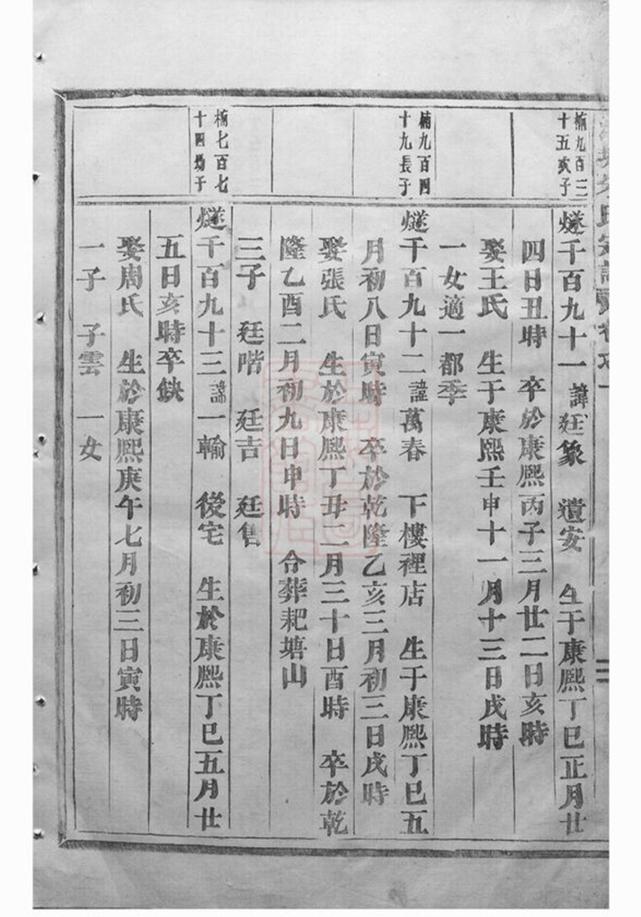 楠九百三
十五次子
燧千百九十一 諱廷象 遺安 生于康熙丁巳正月廿
四日丑時 卒於康熙丙子三月廿二日亥時
娶王氏 生于康熙壬申十一月十三日戌時
一女適一都季
楠九百四
十九長子
燧千百九十二 諱萬春 下樓裡店 生于康熙丁巳五
月初八日寅時 卒於乾隆乙亥三月初三日戌時
娶張氏 生於康熙丁丑二月三十日酉時 卒於乾
隆乙酉二月初九日申時 合葬耙塘山
三子 廷喈 廷吉 廷售
楠七百七
十四幼子
燧千百九十三 諱一輸 後宅 生於康熙丁巳五月廿
五日亥時卒缺
娶周氏 生於康熙庚午七月初三日寅時
一子 子雲 一女